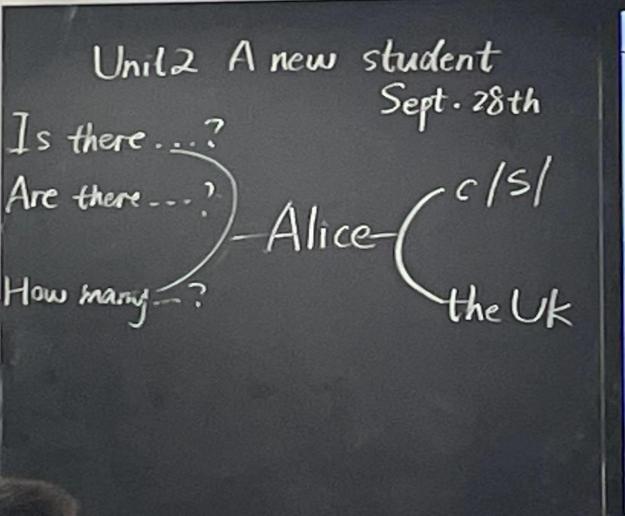 Unit2 A new student
Sept. 28th
Is there....?
Are there---?
How many--?
-Alice-
c/s/
the Uk